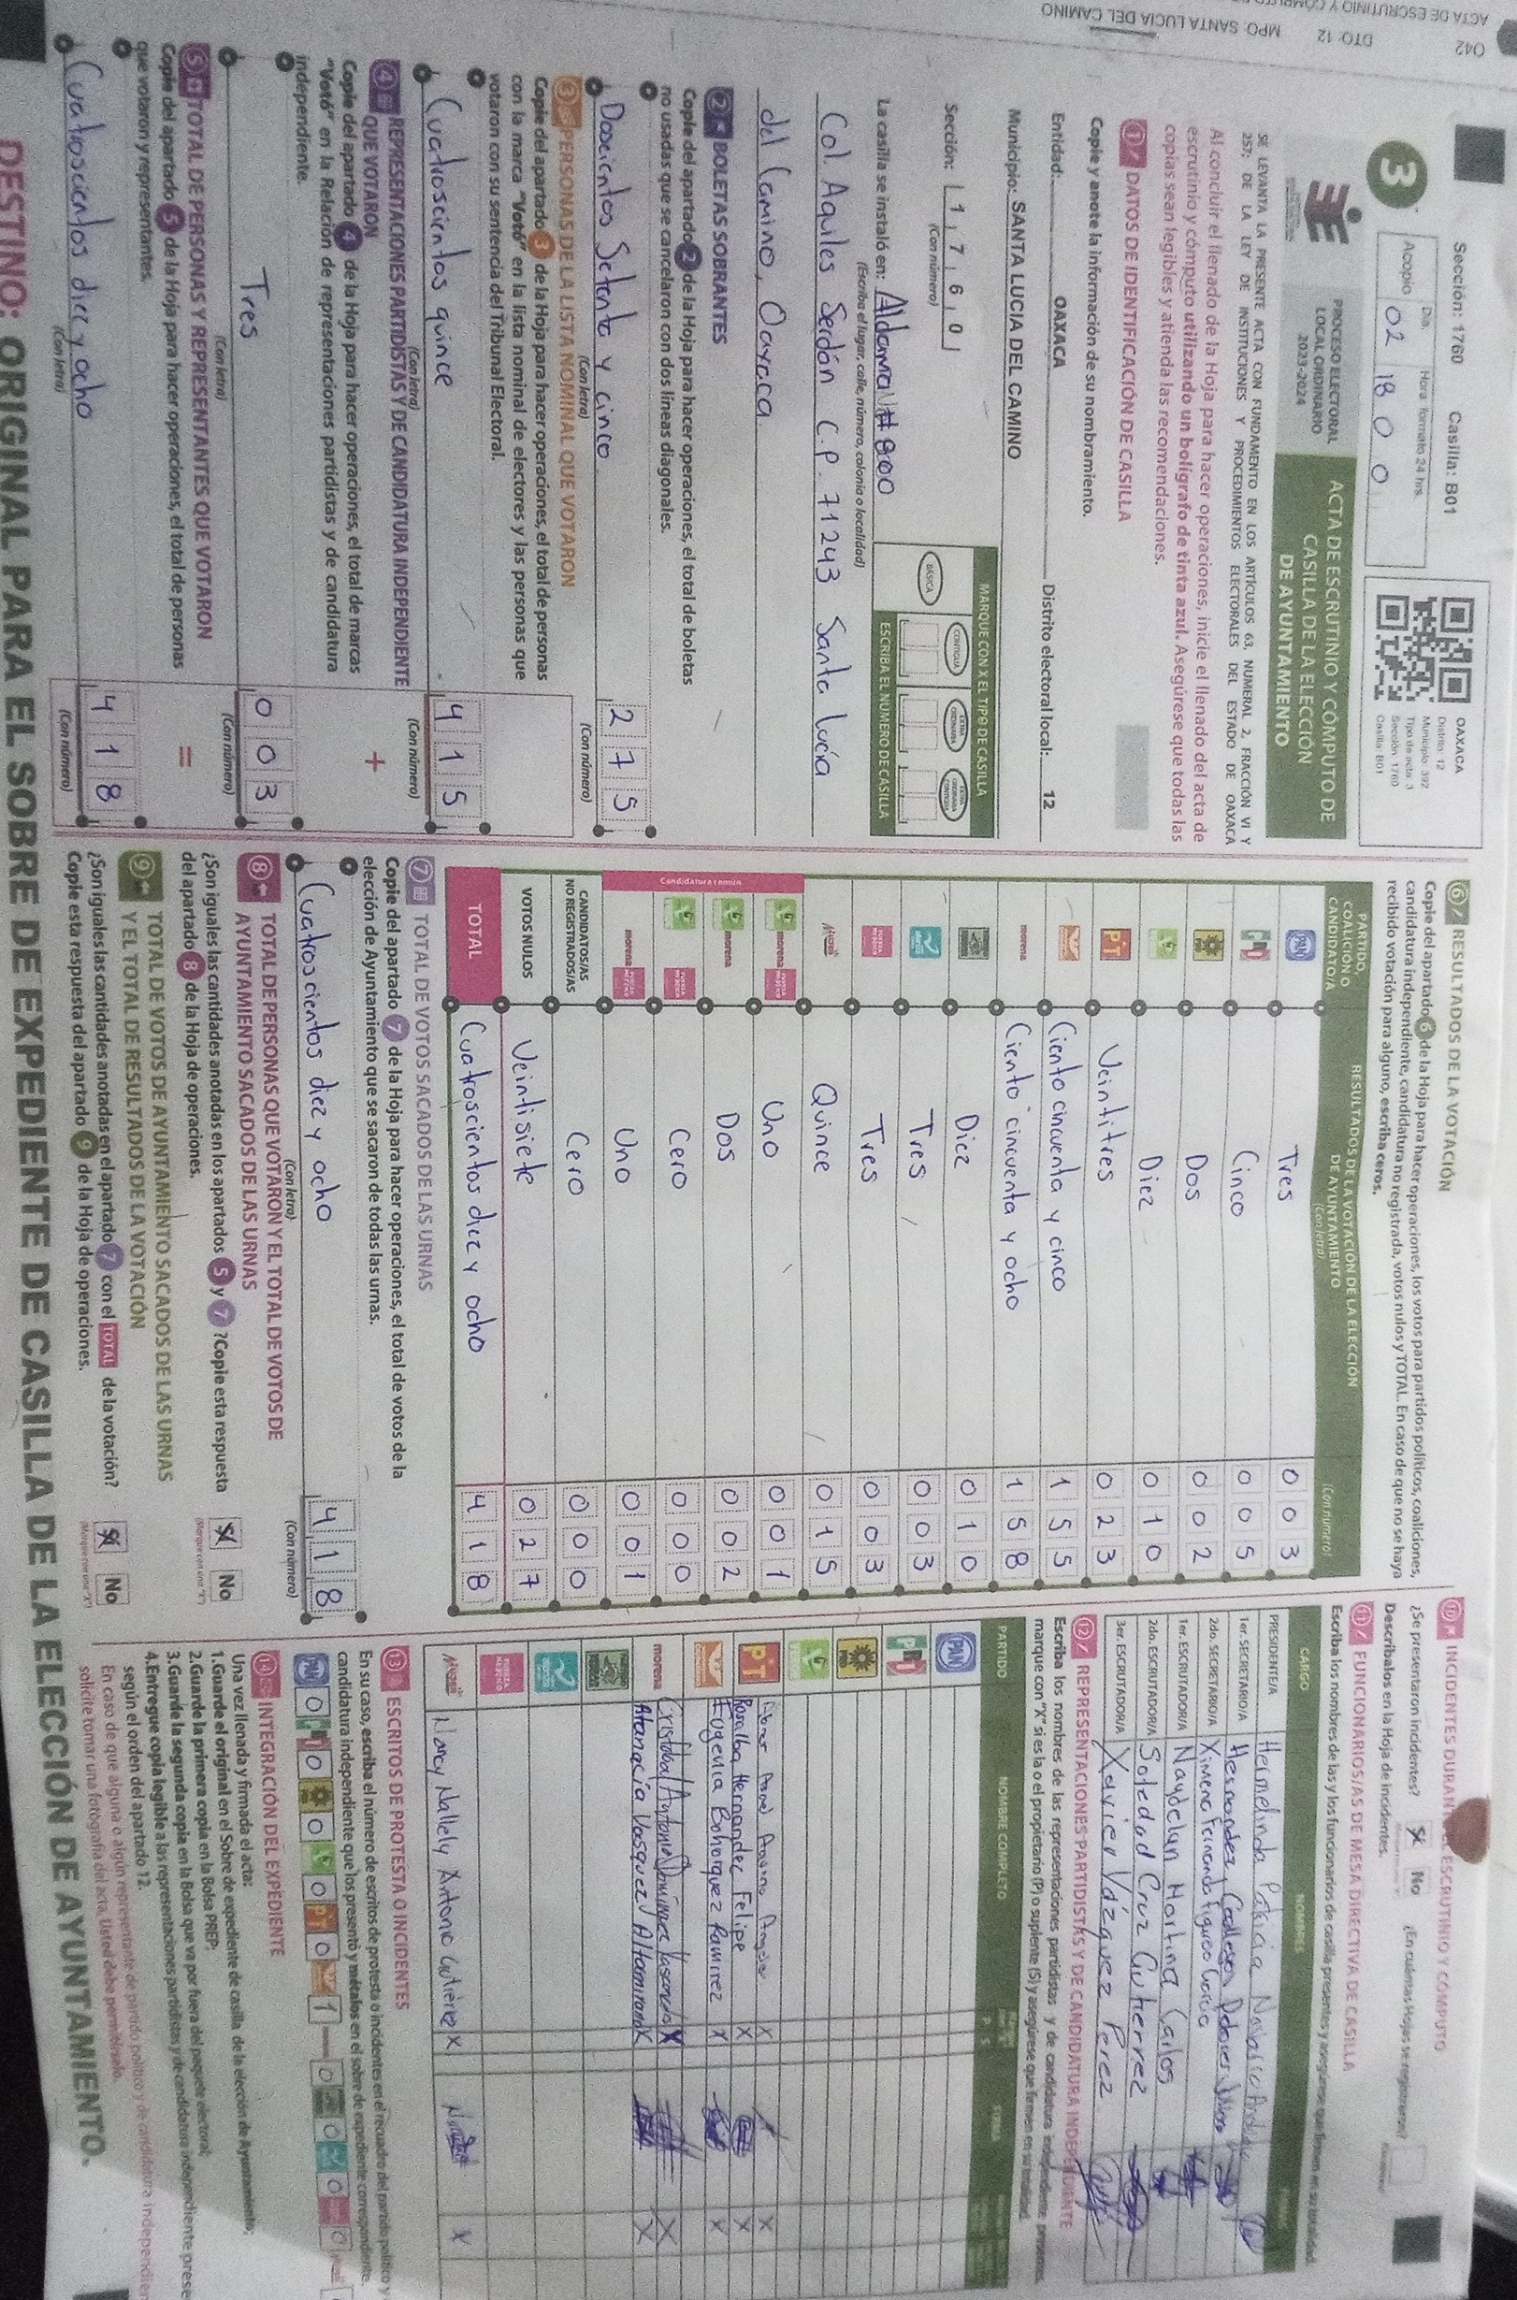 042
DTO: 12
MPO: SANTA LUCIA DEL CAMINO
Sección: 1760 Casilla: B01
Día. Hora formato 24 hrs.
Acopio 02 18 0 0
OAXACA
Distrito: 12
Municipio: 392
Tipo de acta: 3
Sección: 1760
Casilla: B01
3
PROCESO ELECTORAL
LOCAL ORDINARIO
2023-2024
ACTA DE ESCRUTINIO Y CÓMPUTO DE
CASILLA DE LA ELECCIÓN
DE AYUNTAMIENTO
SE LEVANTA LA PRESENTE ACTA CON FUNDAMENTO EN LOS ARTÍCULOS 63, NUMERAL 2, FRACCIÓN VI Y
257; DE LA LEY DE INSTITUCIONES Y PROCEDIMIENTOS ELECTORALES DEL ESTADO DE OAXACA
Al concluir el llenado de la Hoja para hacer operaciones, inicie el llenado del acta de
escrutinio y cómputo utilizando un bolígrafo de tinta azul. Asegúrese que todas las
copias sean legibles y atienda las recomendaciones.
1 DATOS DE IDENTIFICACIÓN DE CASILLA
Copie y anote la información de su nombramiento.
Entidad: OAXACA Distrito electoral local: 12
Municipio: SANTA LUCIA DEL CAMINO
Sección: 1 7 6 0
(Con número)
MARQUE CON X EL TIPO DE CASILLA
BÁSICA
CONTIGUA
ESCRIBA EL NÚMERO DE CASILLA
La casilla se instaló en: Aldama #800
(Escriba el lugar, calle, número, colonia o localidad)
Col. Aquiles Serdán C.P. 71243 Santa Lucía
del Camino, Oaxaca
2 BOLETAS SOBRANTES
Copie del apartado 2 de la Hoja para hacer operaciones, el total de boletas
no usadas que se cancelaron con dos líneas diagonales.
Doscientos Setenta y cinco 2 7 5
(Con letra) (Con número)
3 PERSONAS DE LA LISTA NOMINAL QUE VOTARON
Copie del apartado 3 de la Hoja para hacer operaciones, el total de personas
con la marca "Votó" en la lista nominal de electores y las personas que
votaron con su sentencia del Tribunal Electoral.
Cuatroscientos quince 4 1 5
(Con letra) (Con número)
4 REPRESENTACIONES PARTIDISTAS Y DE CANDIDATURA INDEPENDIENTE
QUE VOTARON
+
Copie del apartado 4 de la Hoja para hacer operaciones, el total de marcas
"Votó" en la Relación de representaciones partidistas y de candidatura
independiente.
Tres 0 0 3
(Con letra) (Con número)
5 TOTAL DE PERSONAS Y REPRESENTANTES QUE VOTARON
=
Copie del apartado 5 de la Hoja para hacer operaciones, el total de personas
que votaron y representantes.
Cuatroscientos diez y ocho 4 1 8
(Con letra) (Con número)
6 RESULTADOS DE LA VOTACIÓN
Copie del apartado 6 de la Hoja para hacer operaciones, los votos para partidos políticos, coaliciones,
candidatura independiente, candidatura no registrada, votos nulos y TOTAL. En caso de que no se haya
recibido votación para alguno, escriba ceros.
PARTIDO,
COALICIÓN O
CANDIDATO/A
RESULTADOS DE LA VOTACIÓN DE LA ELECCIÓN
DE AYUNTAMIENTO
(Con letra)
(Con número)
PAN Tres 0 0 3
PRI Cinco 0 0 5
PRD Dos 0 0 2
Diez 0 1 0
PT Veintitres 0 2 3
Ciento cincuenta y cinco 1 5 5
morena Ciento cincuenta y ocho 1 5 8
Diez 0 1 0
Tres 0 0 3
Tres 0 0 3
MUJER Quince 0 1 5
Candidatura común
morena Uno 0 0 1
morena Dos 0 0 2
Cero 0 0 0
morena Uno 0 0 1
CANDIDATOS/AS
NO REGISTRADOS/AS
Cero 0 0 0
VOTOS NULOS Veintisiete 0 2 7
TOTAL Cuatroscientos diez y ocho 4 1 8
7 TOTAL DE VOTOS SACADOS DE LAS URNAS
Copie del apartado 7 de la Hoja para hacer operaciones, el total de votos de la
elección de Ayuntamiento que se sacaron de todas las urnas.
Cuatroscientos diez y ocho 4 1 8
(Con letra) (Con número)
8 TOTAL DE PERSONAS QUE VOTARON Y EL TOTAL DE VOTOS DE
AYUNTAMIENTO SACADOS DE LAS URNAS
¿Son iguales las cantidades anotadas en los apartados 5 y 7 ?Copie esta respuesta
del apartado 8 de la Hoja de operaciones.
Sí No
(Marque con una "X")
9 TOTAL DE VOTOS DE AYUNTAMIENTO SACADOS DE LAS URNAS
Y EL TOTAL DE RESULTADOS DE LA VOTACIÓN
¿Son iguales las cantidades anotadas en el apartado 7 con el TOTAL de la votación?
Copie esta respuesta del apartado 9 de la Hoja de operaciones.
Sí No
(Marque con una "X")
10 INCIDENTES ESCRUTINIO Y CÓMPUTO
¿Se presentaron incidentes? Sí No ¿En cuántas Hojas se registraron?
Descríbalos en la Hoja de incidentes.
11 FUNCIONARIOS/AS DE MESA DIRECTIVA DE CASILLA
Escriba los nombres de las y los funcionarios de casilla presentes y asegúrese que firmen en su totalidad.
CARGO NOMBRES
PRESIDENTE/A Hermelinda Patricia
1er. SECRETARIO/A Hernandez
2do. SECRETARIO/A Ximena Fernanda Figueroa Garcia
1er. ESCRUTADOR/A Martina Carlos
2do. ESCRUTADOR/A Soledad Cruz Gutierrez
3er. ESCRUTADOR/A Xavier Vázquez Perez
12 REPRESENTACIONES PARTIDISTAS Y DE CANDIDATURA INDEPENDIENTE
Escriba los nombres de las representaciones partidistas y de candidatura independiente presentes,
marque con "X" si es la o el propietario (P) o suplente (S) y asegúrese que firmen en su totalidad.
PARTIDO NOMBRE COMPLETO P S FIRMA
PAN
PRI
PRD
PT Rosalba Hernandez Felipe X X
Eugenia Bohorquez Ramirez X X
morena Cristobal Antonio X X
Atanacia Vasquez Altamirano X X
MUJER Nancy Nallely Antonio Gutierrez X X
13 ESCRITOS DE PROTESTA O INCIDENTES
En su caso, escriba el número de escritos de protesta o incidentes en el recuadro del partido político y
candidatura independiente que los presentó y métalos en el sobre de expediente correspondiente.
PAN 0 PRI 0 PRD 0 0 PT 0 1 0 0 0 0
14 INTEGRACIÓN DEL EXPEDIENTE
Una vez llenada y firmada el acta:
1.Guarde el original en el Sobre de expediente de casilla de la elección de Ayuntamiento;
2.Guarde la primera copia en la Bolsa PREP;
3.Guarde la segunda copia en la Bolsa que va por fuera del paquete electoral;
4.Entregue copia legible a las representaciones partidistas y de candidatura independiente prese
según el orden del apartado 12.
En caso de que alguna o algún representante de partido político y de candidatura independien
solicite tomar una fotografía del acta, usted debe permitírselo.
DESTINO: ORIGINAL PARA EL SOBRE DE EXPEDIENTE DE CASILLA DE LA ELECCIÓN DE AYUNTAMIENTO.